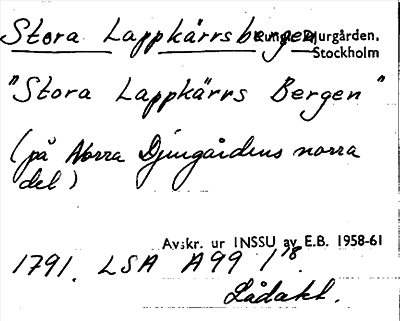 Stora Lappkärrsbergen Kungl. Djurgården,
Stockholm
"Stora Lappkärrs Bergen"
(på Norra Djurgårdens norra
del)
Avskr. ur INSSU av E.B. 1958-61
1791. LSA A99 1^18.
Lådakt.